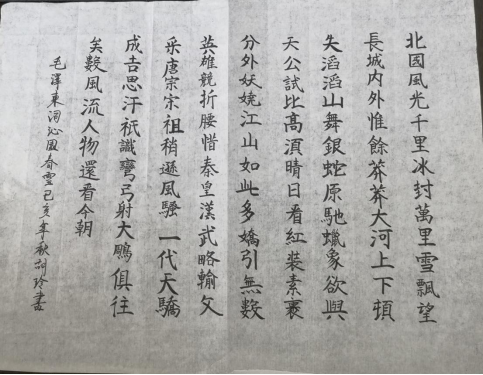 北國風光千里冰封萬里雪飄望
長城内外惟餘莽莽大河上下頓
失滔滔山舞銀蛇原馳蠟象欲與
天公試比高須晴日看紅裝素裹
分外妖嬈江山如此多嬌引無數
英雄競折腰惜秦皇漢武略輸文
采唐宗宋祖稍遜風騷一代天驕
成吉思汗衹識彎弓射大鵰俱往
矣數風流人物還看今朝
毛澤東詞沁園春雪己亥年秋胡玲書